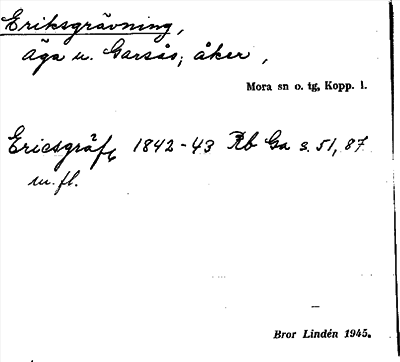 Eriksgrävning,
äga u. Garsås; åker,
Mora sn o. tg, Kopp. l.
Ericsgräf 1842-43 Rb Ga s. 51, 87
m. fl.
Bror Lindén 1945.